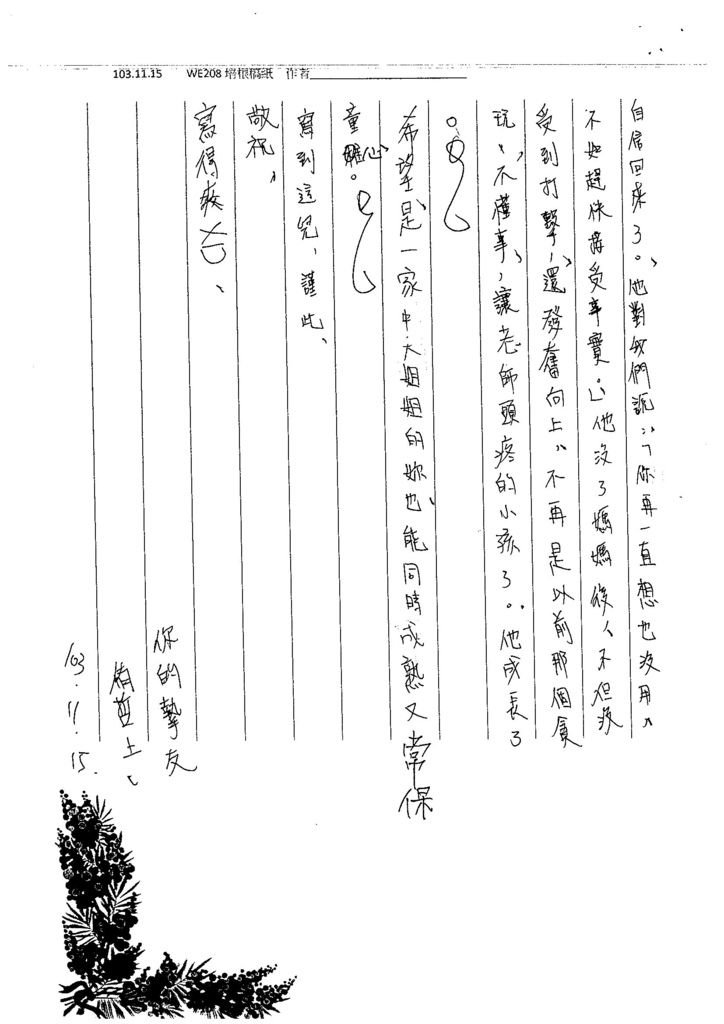 103.11.15 WE208 培根稿紙 作者
自信回來了。他對我們說:「你再一直想也沒用,
不如趕快接受事實。」他沒了媽媽後,不但沒
受到打擊,還發奮向上,不再是以前那個貪
玩、不懂事,讓老師頭疼的小孩了。他成長了
。
希望是一家中大姐姐的妳也能同時成熟又常保
童心。
寫到這兒,謹此、
敬祝、
寫得教XD、
你的摯友
上
103.11.15.